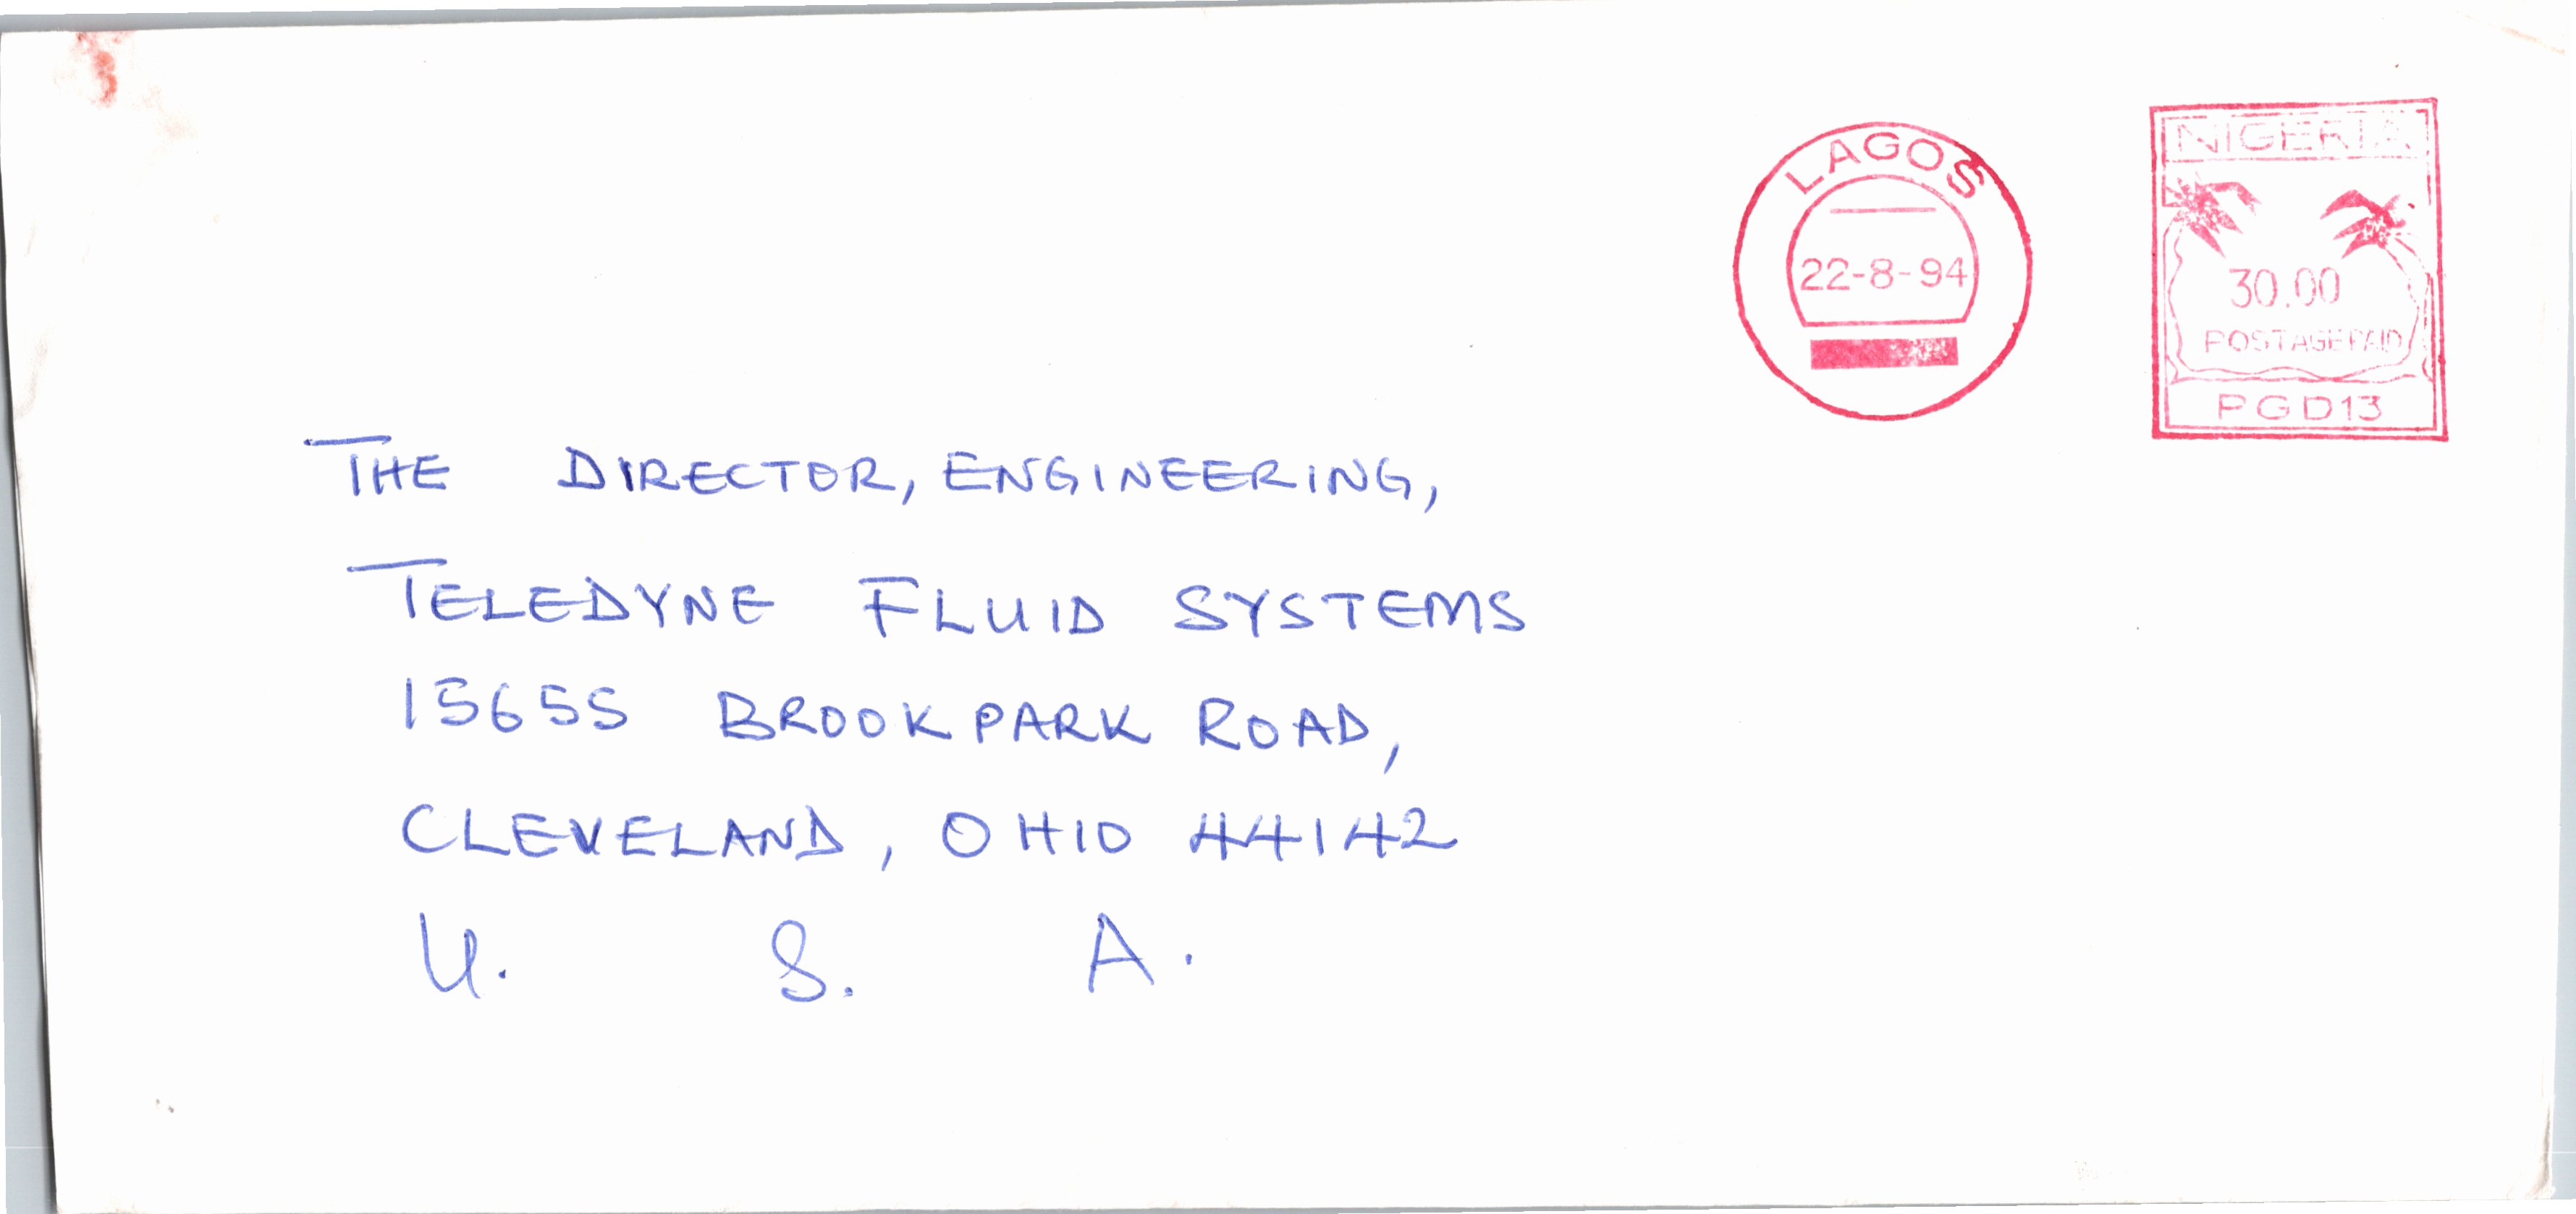 LAGOS
22-8-94
NIGERIA
30.00
POSTAGE PAID
PGD13
THE DIRECTOR, ENGINEERING,
TELEDYNE FLUID SYSTEMS
15655 BROOKPARK ROAD,
CLEVELAND, OHIO 44142
U. S. A.